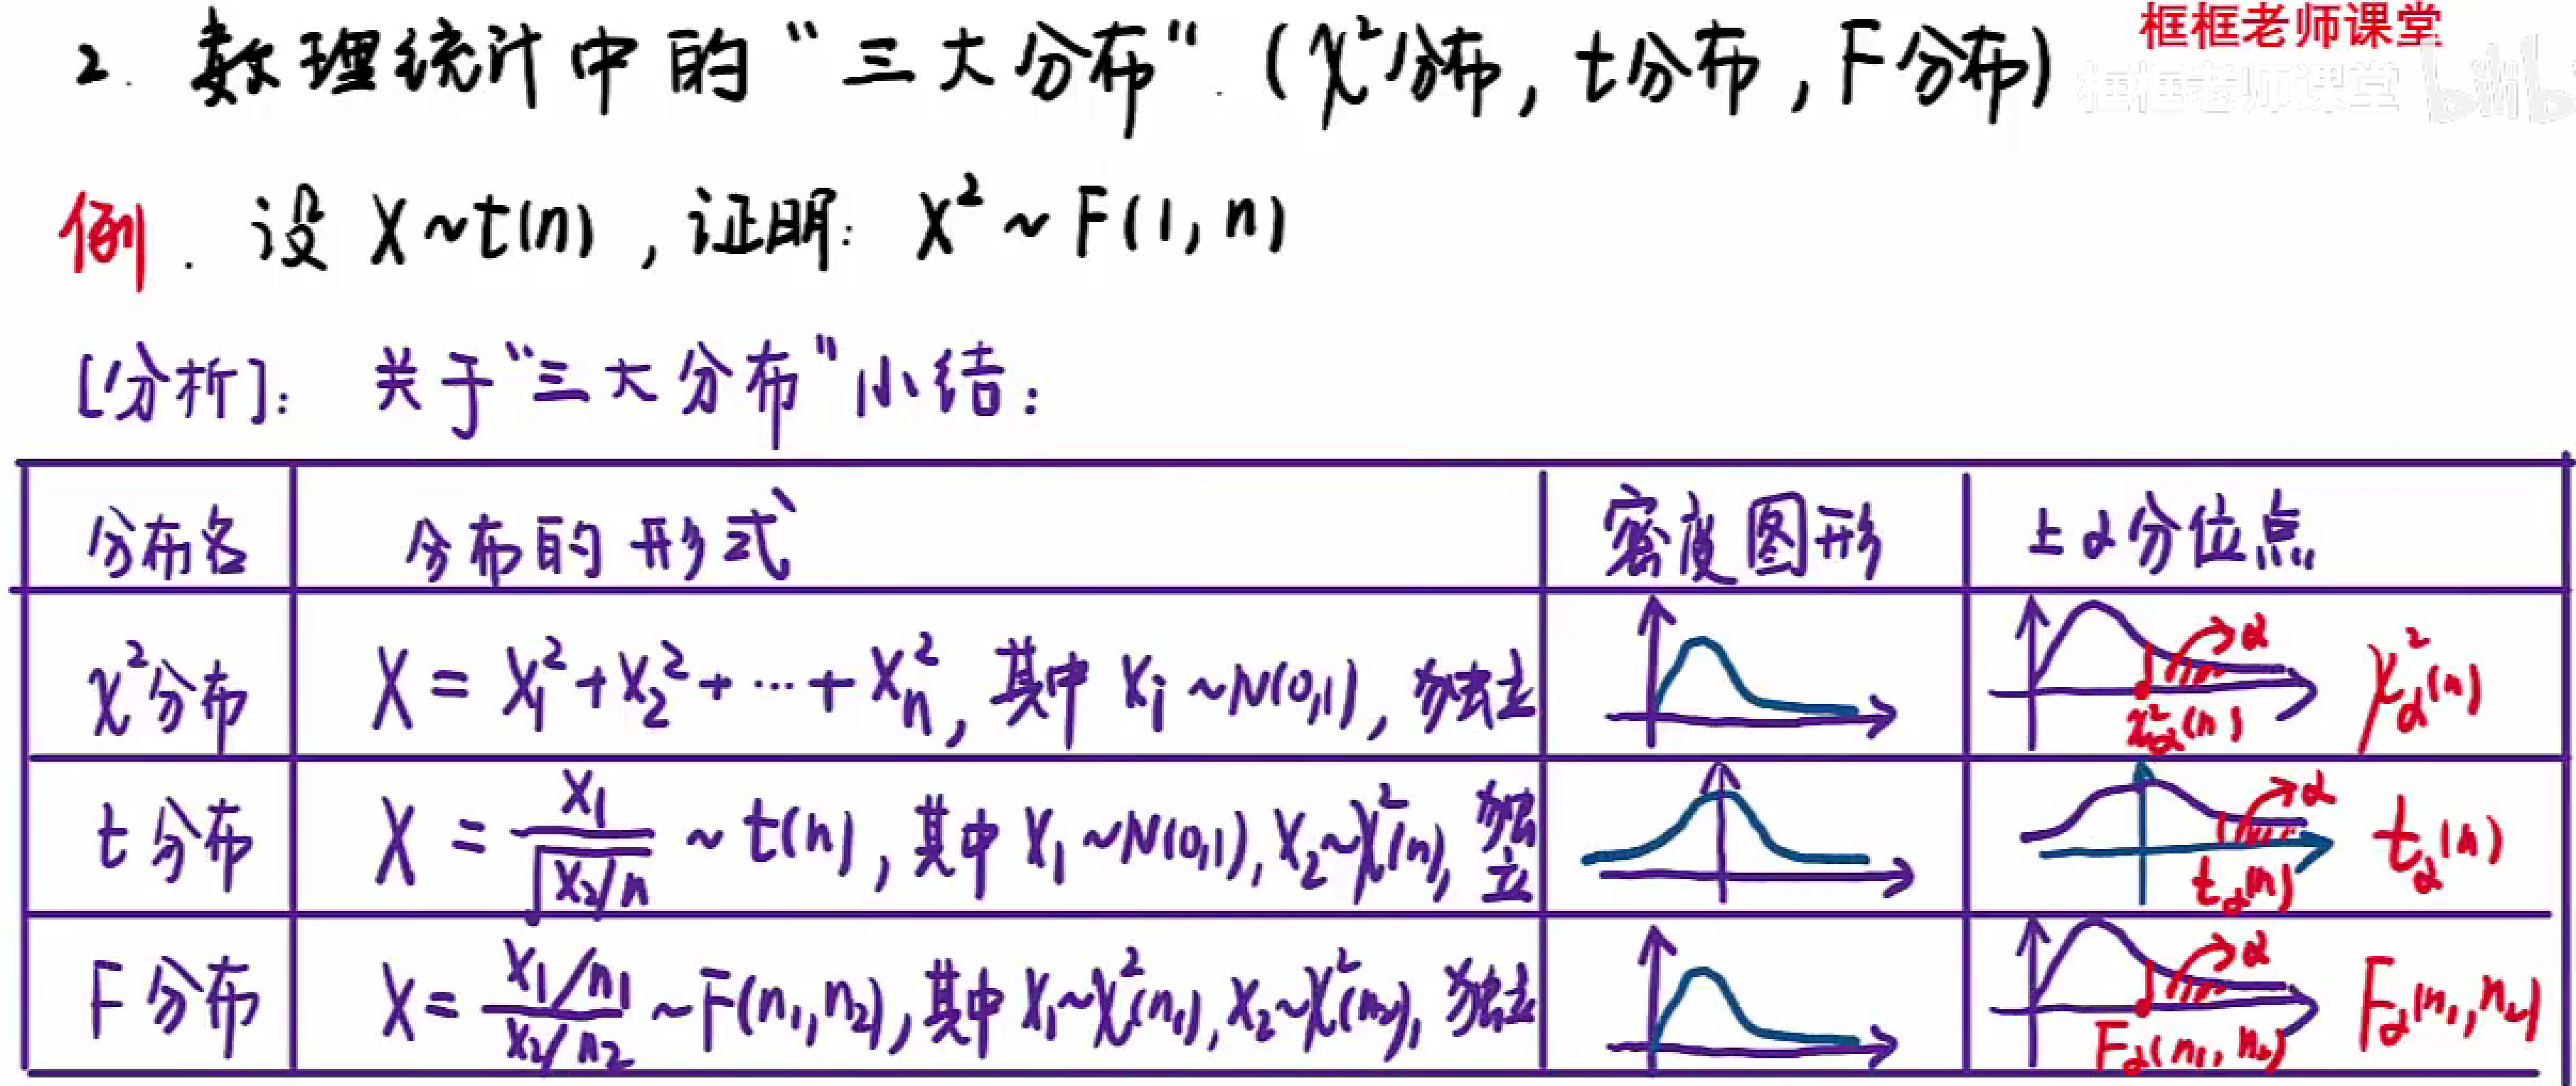 2. 数理统计中的“三大分布”. (χ²分布, t分布, F分布)
框框老师课堂
框框老师课堂 bilibili
例. 设 X~t(n), 证明: X² ~ F(1, n)
[分析]: 关于“三大分布”小结:
分布名 分布的形式 密度图形 上α分位点
χ²分布 X = X₁² + X₂² + ⋯ + Xₙ², 其中 Xᵢ ~N(0,1), 独立 α χ²_α(n) χ²_α(n)
t分布 X = X₁/√(X₂/n) ~ t(n), 其中 X₁ ~N(0,1), X₂~χ²(n), 独立 α t_α(n) t_α(n)
F分布 X = (X₁/n₁)/(X₂/n₂) ~F(n₁,n₂), 其中 X₁~χ²(n₁), X₂~χ²(n₂), 独立 α F_α(n₁, n₂) F_α(n₁, n₂)